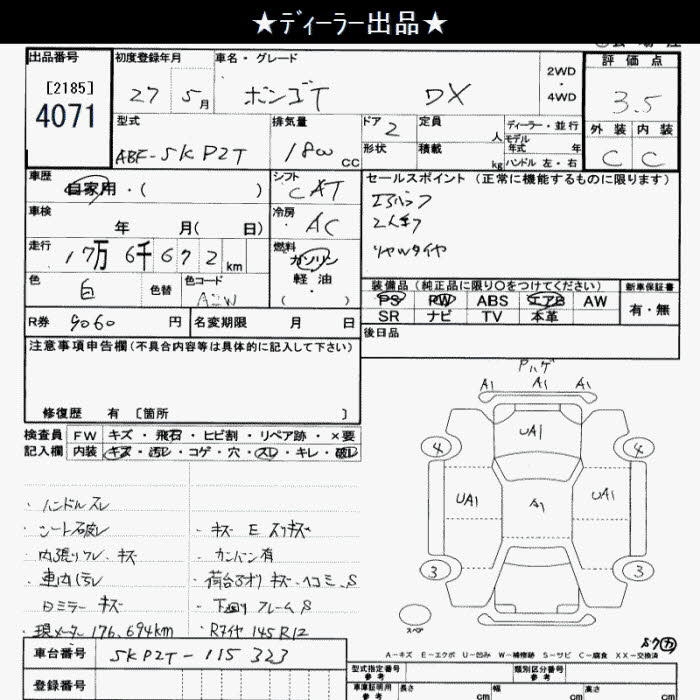 ★ディーラー出品★
出品番号 初度登録年月 車名・グレード 評価点
[2185] 4071
27年 5月 ボンゴT DX 2WD・4WD 3.5
型式 排気量 ドア 2 定員 人 ディーラー・並行 外装 内装
ABF-SKP2T 1800 cc 形状 積載 kg モデル年式 年 C C
ハンドル 左・右
車歴 自家用・( ) シフト CAT セールスポイント (正常に機能するものに限ります)
車検 年 月( 日) 冷房 AC
走行 17万6千672km 燃料 ガソリン 軽油 ( )
リヤWタイヤ
色 白 色替 色コード A2W
装備品 (純正品に限り○をつけてください) 新車保証書
PS PW ABS エアB AW 有・無
SR ナビ TV 本革
R券 9060 円 名変期限 月 日 後日品
注意事項申告欄(不具合内容等は具体的に記入して下さい)
修復歴 有 〔箇所 〕
検査員記入欄 FW キズ・飛石・ヒビ割・リペア跡・×要
内装 キズ・汚レ・コゲ・穴・スレ・キレ・破レ
・ハンドルスレ
・シート破レ ・キズ E スリキズ
・内張りワレ、キズ ・カンバン有
・車内汚レ ・荷台アオリ キズ ヘコミ、S
Dミラー キズ ・下回り フレームS
・現メーター 176,694km ・Rタイヤ 145R12
Pハゲ
A1 A1 A1
UA1
4 4
UA1 A1 UA1
3 3
スペア
A-キズ E-エクボ U-凹み W-補修跡 S-サビ C-腐食 XX-交換済
車台番号 SKP2T-115323
登録番号
型式指定番号 参考 類別区分番号 参考
車庫証明用 参考 長さ cm 幅 cm 高さ cm